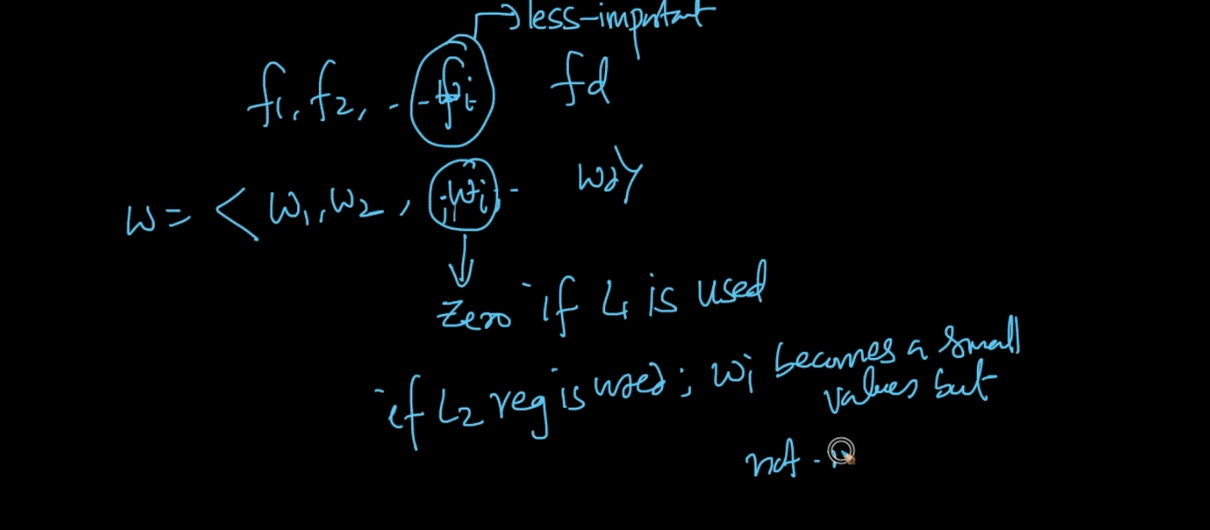 less-important
f1, f2, - - fi fd
w = < w1, w2, , wi, - wd>
Zero if L1 is used
if L2 reg is used; wi becomes a small
values but
not -